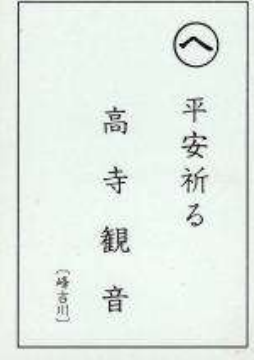 へ
平安祈る
高寺観音
（峰吉川）